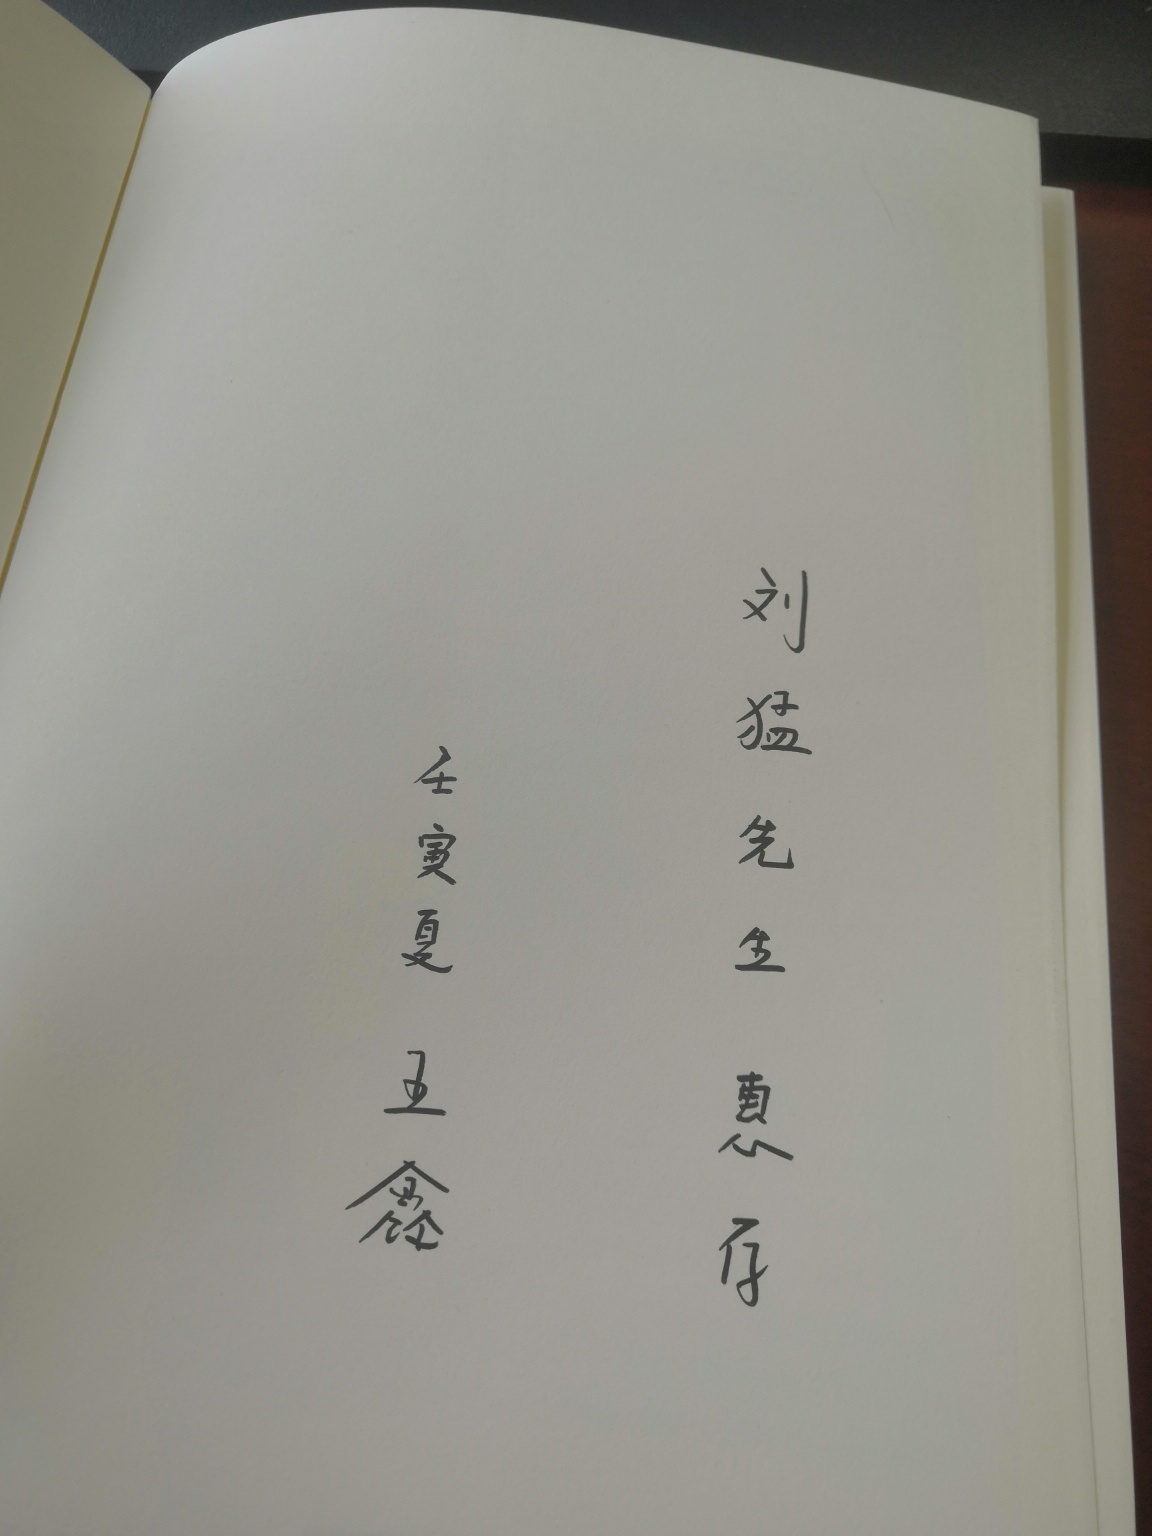 刘猛先生惠存
壬寅夏 王鑫